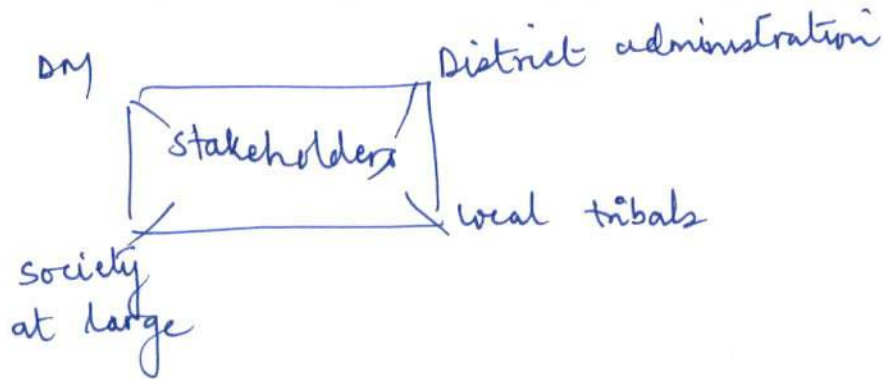 DM
District administration
Stakeholders
local tribals
society
at large